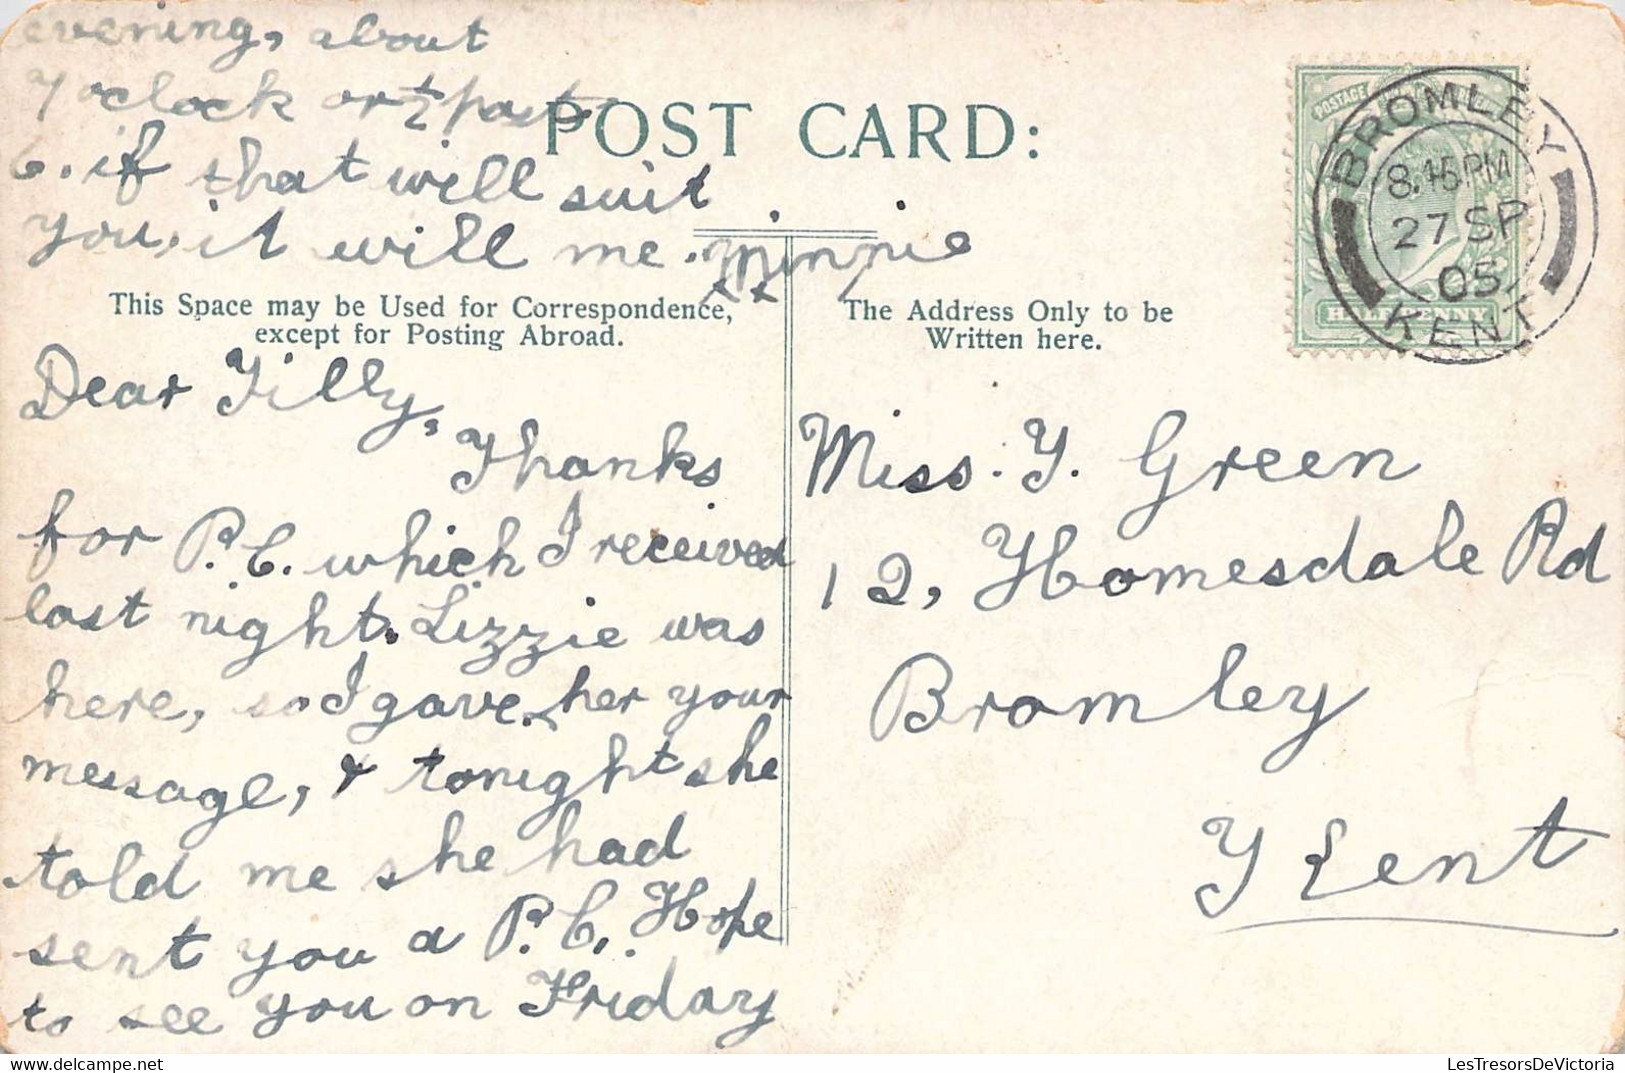 evening, about
7 o'clock or ½ past
6. if that will suit
you, it will me. Minnie
x x
POST CARD:
This Space may be Used for Correspondence,
except for Posting Abroad.
Dear Tilly,
Thanks
for P.C. which I received
last night. Lizzie was
here, so I gave her your
message, & tonight she
told me she had
sent you a P.C. Hope
to see you on Friday
The Address Only to be
Written here.
POSTAGE
HALFPENNY
BROMLEY
8.15 PM
27 SP
05
KENT
Miss. T. Green
12, Homesdale Rd
Bromley
Kent
LesTresorsDeVictoria